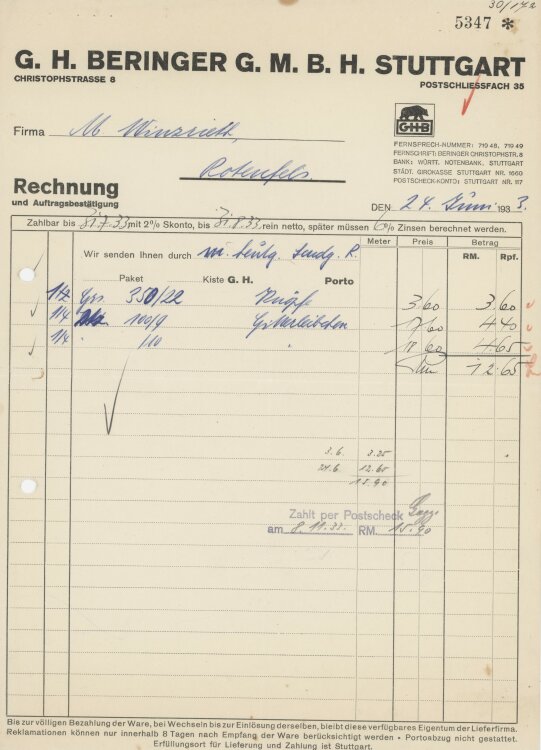 30/172
5347 *
G. H. BERINGER G. M. B. H. STUTTGART
CHRISTOPHSTRASSE 8
POSTSCHLIESSFACH 35
GHB
Firma M
Rotenfels
FERNSPRECH-NUMMER: 719 48, 719 49
FERNSCHRIFT: BERINGER CHRISTOPHSTR. 8
BANK: WÜRTT. NOTENBANK, STUTTGART
STÄDT. GIROKASSE STUTTGART NR. 1660
POSTSCHECK-KONTO: STUTTGART NR. 117
Rechnung
und Auftragsbestätigung
DEN 24. Juni 1933.
Zahlbar bis 31.7.33 mit 2% Skonto, bis 31.8.33 rein netto, später müssen 6% Zinsen berechnet werden.
Meter Preis Betrag
RM. Rpf.
Wir senden Ihnen durch
Paket Kiste G. H. Porto
1/2 Grs 350/22 Knöpfe 3.60 3.60
1/4 100/9 17 60 4 40
1/4 /10 " 18 60 4 65
12.65
3.6. 3.25
24.6. 12.60
15.90
Zahlt per Postscheck
am 8.11.33. RM. 15.90
Bis zur völligen Bezahlung der Ware, bei Wechseln bis zur Einlösung derselben, bleibt diese verfügbares Eigentum der Lieferfirma.
Reklamationen können nur innerhalb 8 Tagen nach Empfang der Ware berücksichtigt werden • Portoabzug nicht gestattet.
Erfüllungsort für Lieferung und Zahlung ist Stuttgart.